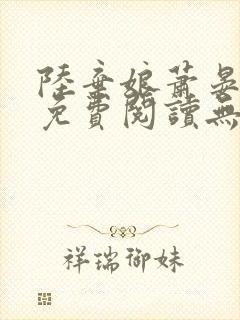 陸棄娘蕭晏
免費閱讀無
祥瑞御妹